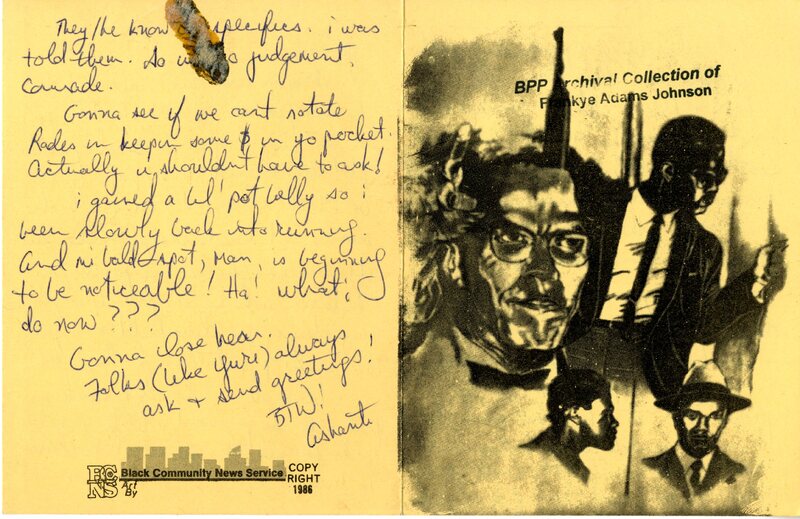 They/he know specifics. i was
told them. So judgement,
Comrade.
Gonna see if we can't rotate
Rades in keepin some $ in yo pocket.
Actually u shouldn't have to ask!
i gained a lil' pot belly so i
been slowly back into running.
And mi bald-spot, man, is beginning
to be noticeable! Ha! what i
do now ???
Gonna close hear.
Folks (like Yuri) always
ask & send greetings!
BTW!
Ashanti
BCNS
Black Community News Service
Art By
COPY
RIGHT
1986
BPP Archival Collection of
Frankye Adams Johnson